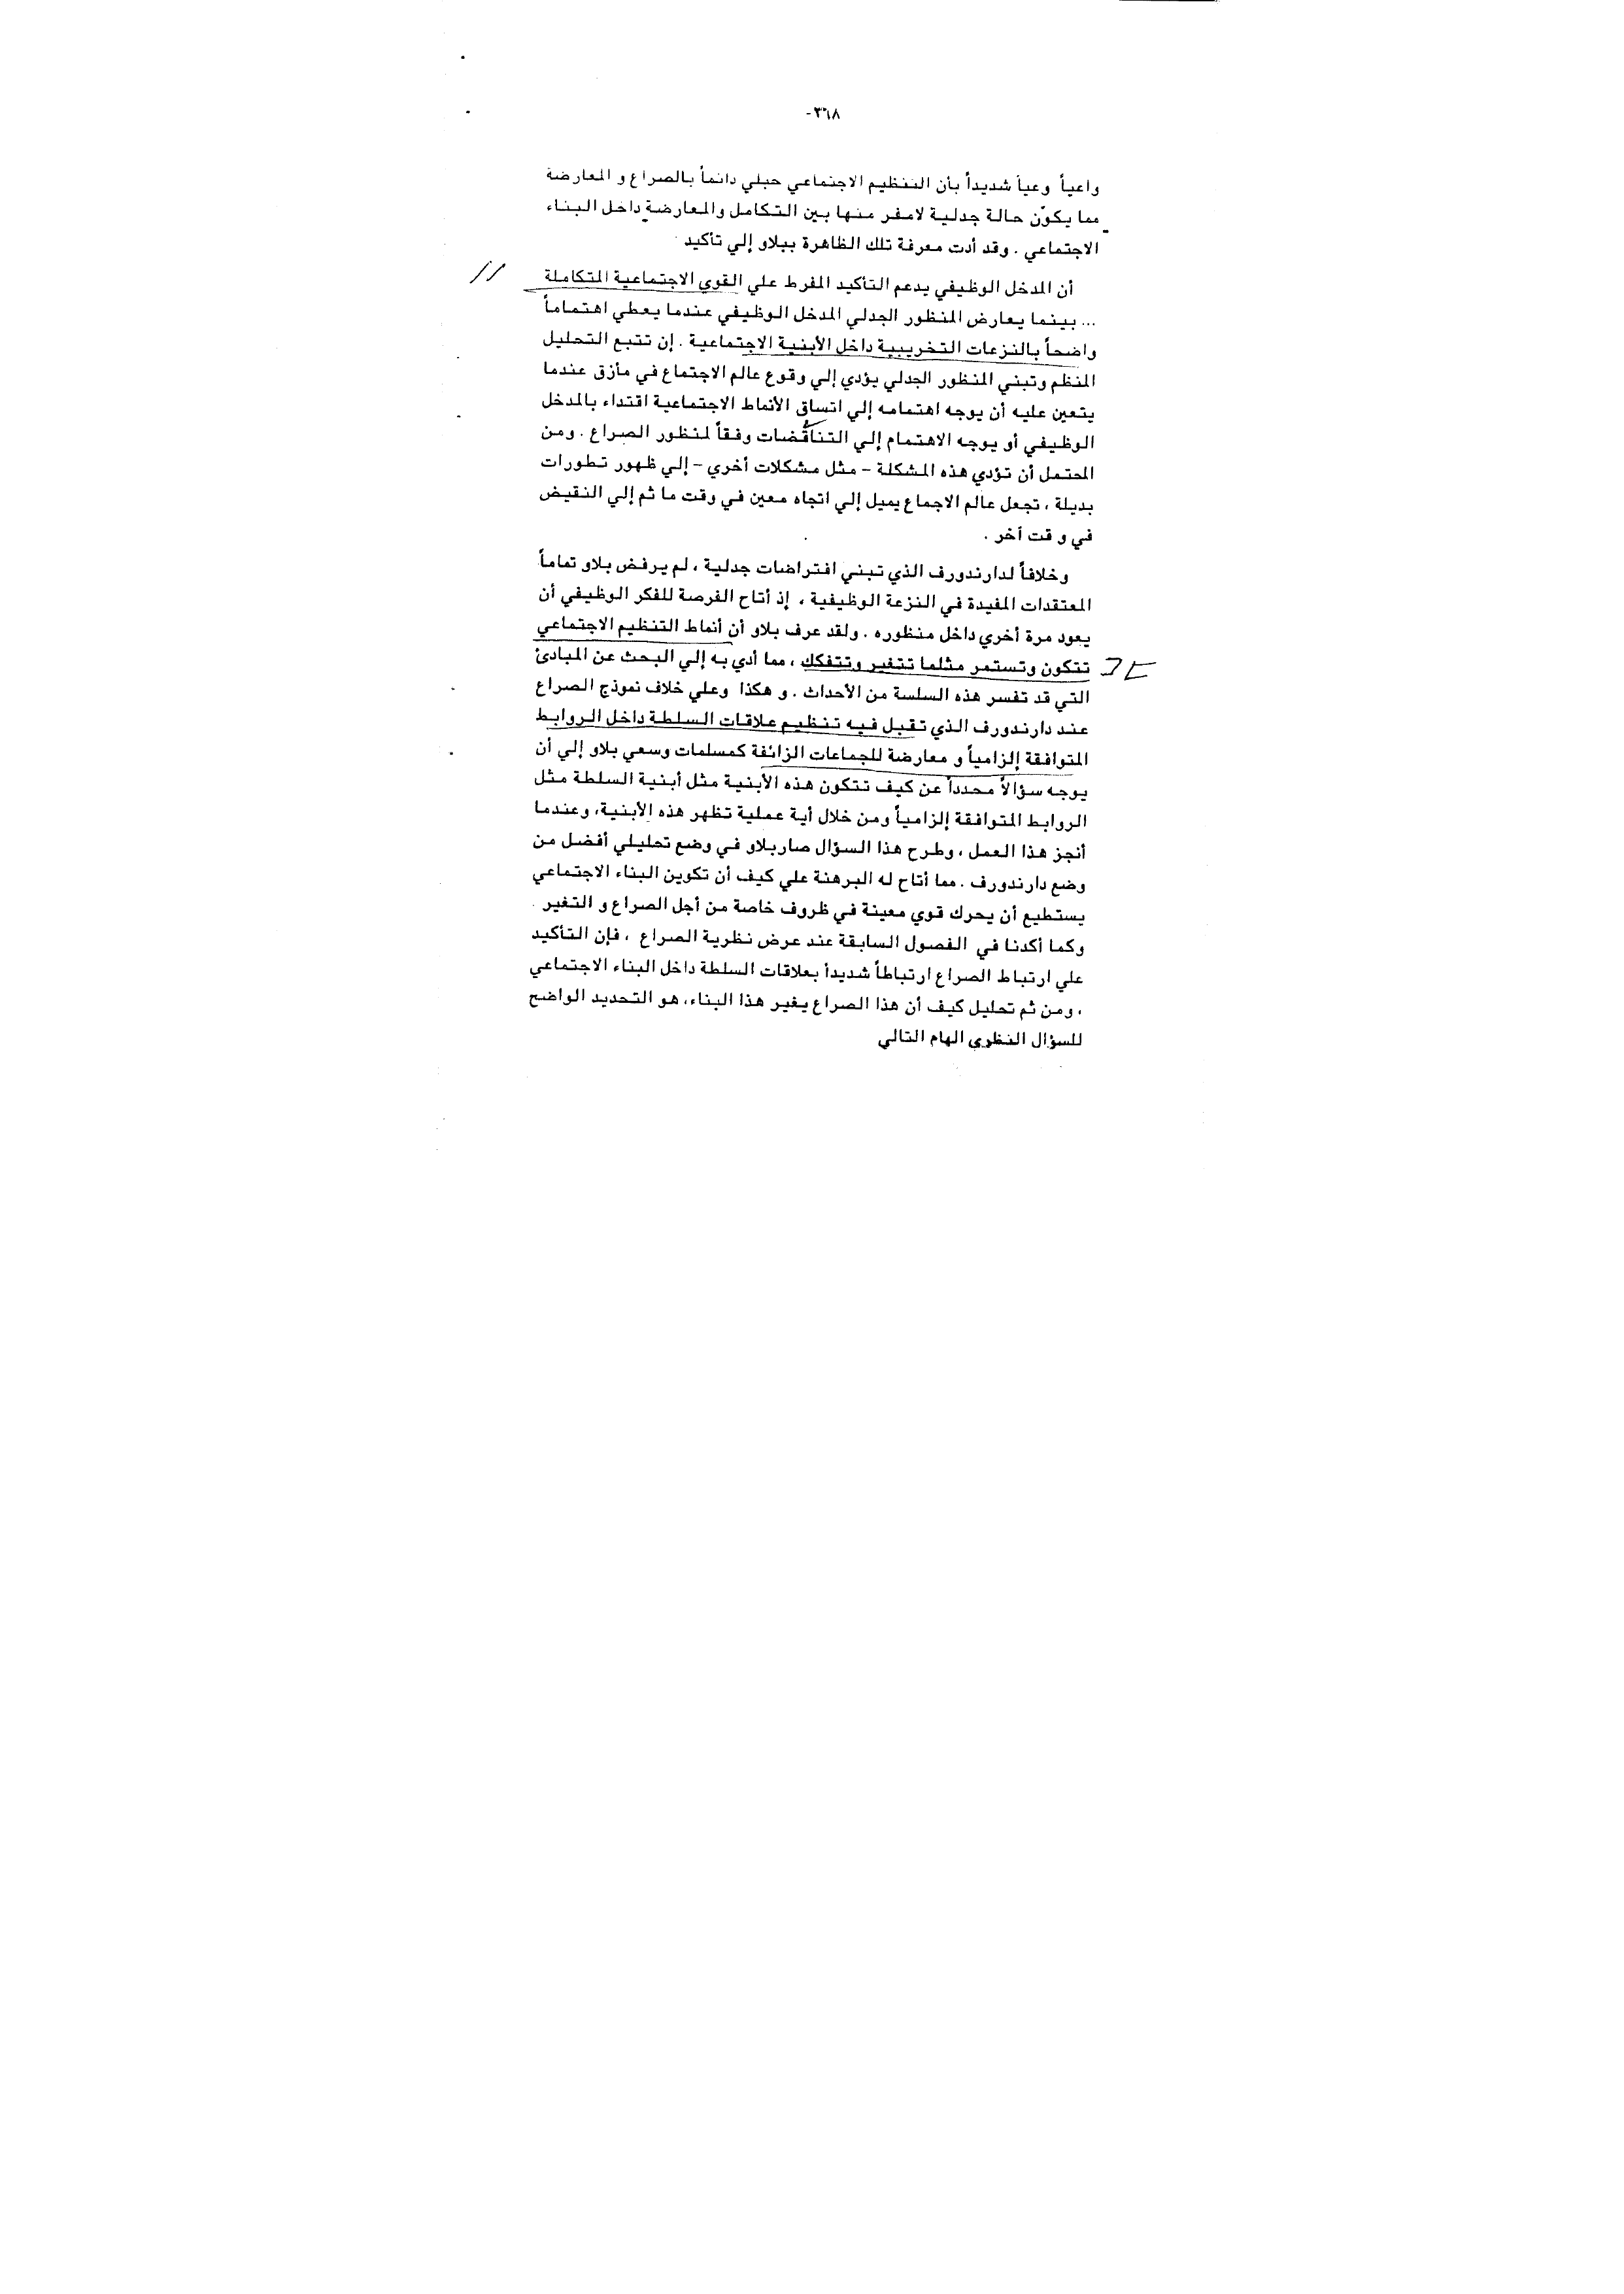 ٣٦٨-
واعياً وعياً شديداً بأن التنظيم الاجتماعي حبلي دائماً بالصراع و المعارضة
مما يكوّن حالة جدلية لامفر منها بين التكامل والمعارضة داخل البناء
الاجتماعي . وقد أدت معرفة تلك الظاهرة ببلاو إلي تأكيد
أن المدخل الوظيفي يدعم التأكيد المفرط علي القوي الاجتماعية المتكاملة
... بينما يعارض المنظور الجدلي المدخل الوظيفي عندما يعطي اهتماماً
واضحاً بالنزعات التخريبية داخل الأبنية الاجتماعية . إن تتبع التحليل
المنظم وتبني المنظور الجدلي يؤدي إلي وقوع عالم الاجتماع في مأزق عندما
يتعين عليه أن يوجه اهتمامه إلي اتساق الأنماط الاجتماعية اقتداء بالمدخل
الوظيفي أو يوجه الاهتمام إلي التناقضات وفقاً لمنظور الصراع . ومن
المحتمل أن تؤدي هذه المشكلة - مثل مشكلات أخري - إلي ظهور تطورات
بديلة ، تجعل عالم الاجماع يميل إلي اتجاه معين في وقت ما ثم إلي النقيض
في و قت أخر .
وخلافاً لدارندورف الذي تبني افتراضات جدلية ، لم يرفض بلاو تماماً
المعتقدات المفيدة في النزعة الوظيفية ، إذ أتاح الفرصة للفكر الوظيفي أن
يعود مرة أخري داخل منظوره . ولقد عرف بلاو أن أنماط التنظيم الاجتماعي
تتكون وتستمر مثلما تتغير وتتفكك ، مما أدي به إلي البحث عن المبادئ
التي قد تفسر هذه السلسة من الأحداث . و هكذا وعلي خلاف نموذج الصراع
عند دارندورف الذي تقبل فيه تنظيم علاقات السلطة داخل الروابط
المتوافقة إلزامياً و معارضة للجماعات الزائفة كمسلمات وسعي بلاو إلي أن
يوجه سؤالاً محدداً عن كيف تتكون هذه الأبنية مثل أبنية السلطة مثل
الروابط المتوافقة إلزامياً ومن خلال أية عملية تظهر هذه الأبنية، وعندما
أنجز هذا العمل ، وطرح هذا السؤال صاربلاو في وضع تحليلي أفضل من
وضع دارندورف . مما أتاح له البرهنة علي كيف أن تكوين البناء الاجتماعي
يستطيع أن يحرك قوي معينة في ظروف خاصة من أجل الصراع و التغير .
وكما أكدنا في الفصول السابقة عند عرض نظرية الصراع ، فإن التأكيد
علي ارتباط الصراع ارتباطاً شديداً بعلاقات السلطة داخل البناء الاجتماعي
، ومن ثم تحليل كيف أن هذا الصراع يغير هذا البناء، هو التحديد الواضح
للسؤال النظري الهام التالي